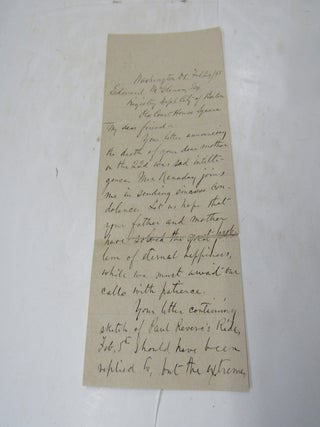 Washington D.C. Feb 24/91
Edward
Registry Dept City of Boston
Court House Square
My dear friend:-
Your letter announcing
the death of your dear mother
on the 22d was sad intelli-
gence. Mrs Kennaday joins
me in sending sincere con-
dolence. Let us hope that
your father and mother
have solved the great prob-
lem of eternal happiness,
while we must await our
calls with patience.
Your letter containing
sketch of Paul Revere's Ride,
Feb. 5th should have been
replied to, but the extreme